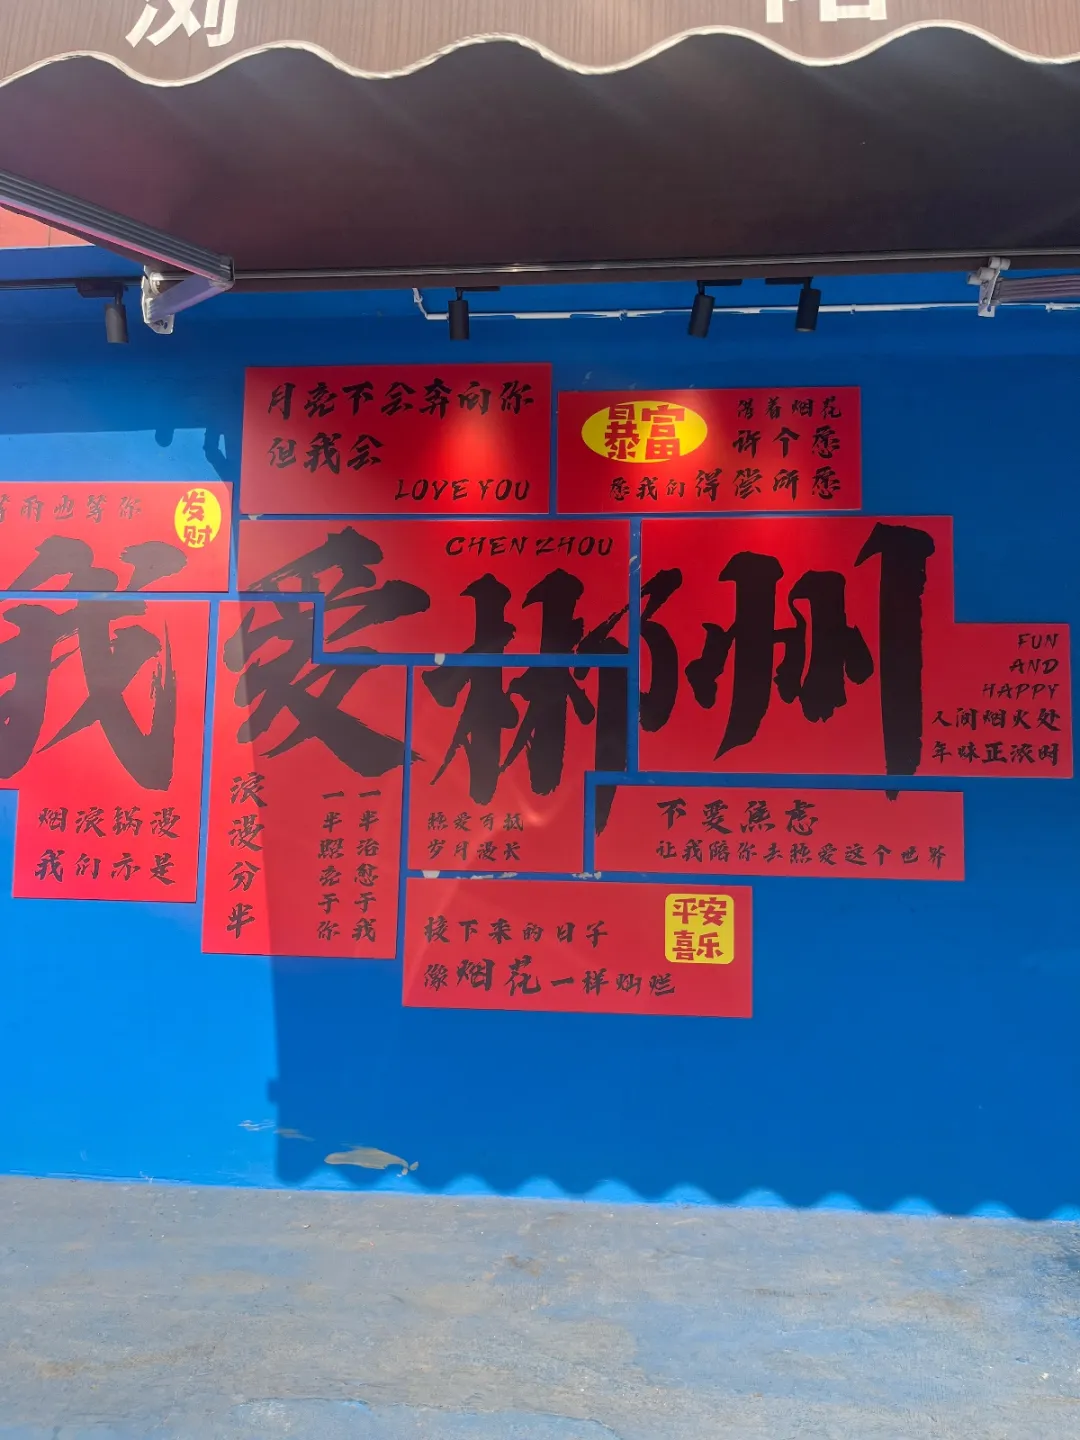 浏 阳
月亮不会奔向你
但我会
LOVE YOU
暴富
借着烟花
许个愿
愿我们得偿所愿
等雨也等你
发财
CHEN ZHOU
我爱郴州
FUN
AND
HAPPY
人间烟火处
年味正浓时
烟滚锅漫
我们亦是
浪漫分半
一半治愈于我
一半照亮于你
热爱可抵
岁月漫长
不要焦虑
让我陪你去热爱这个世界
接下来的日子
像烟花一样灿烂
平安
喜乐